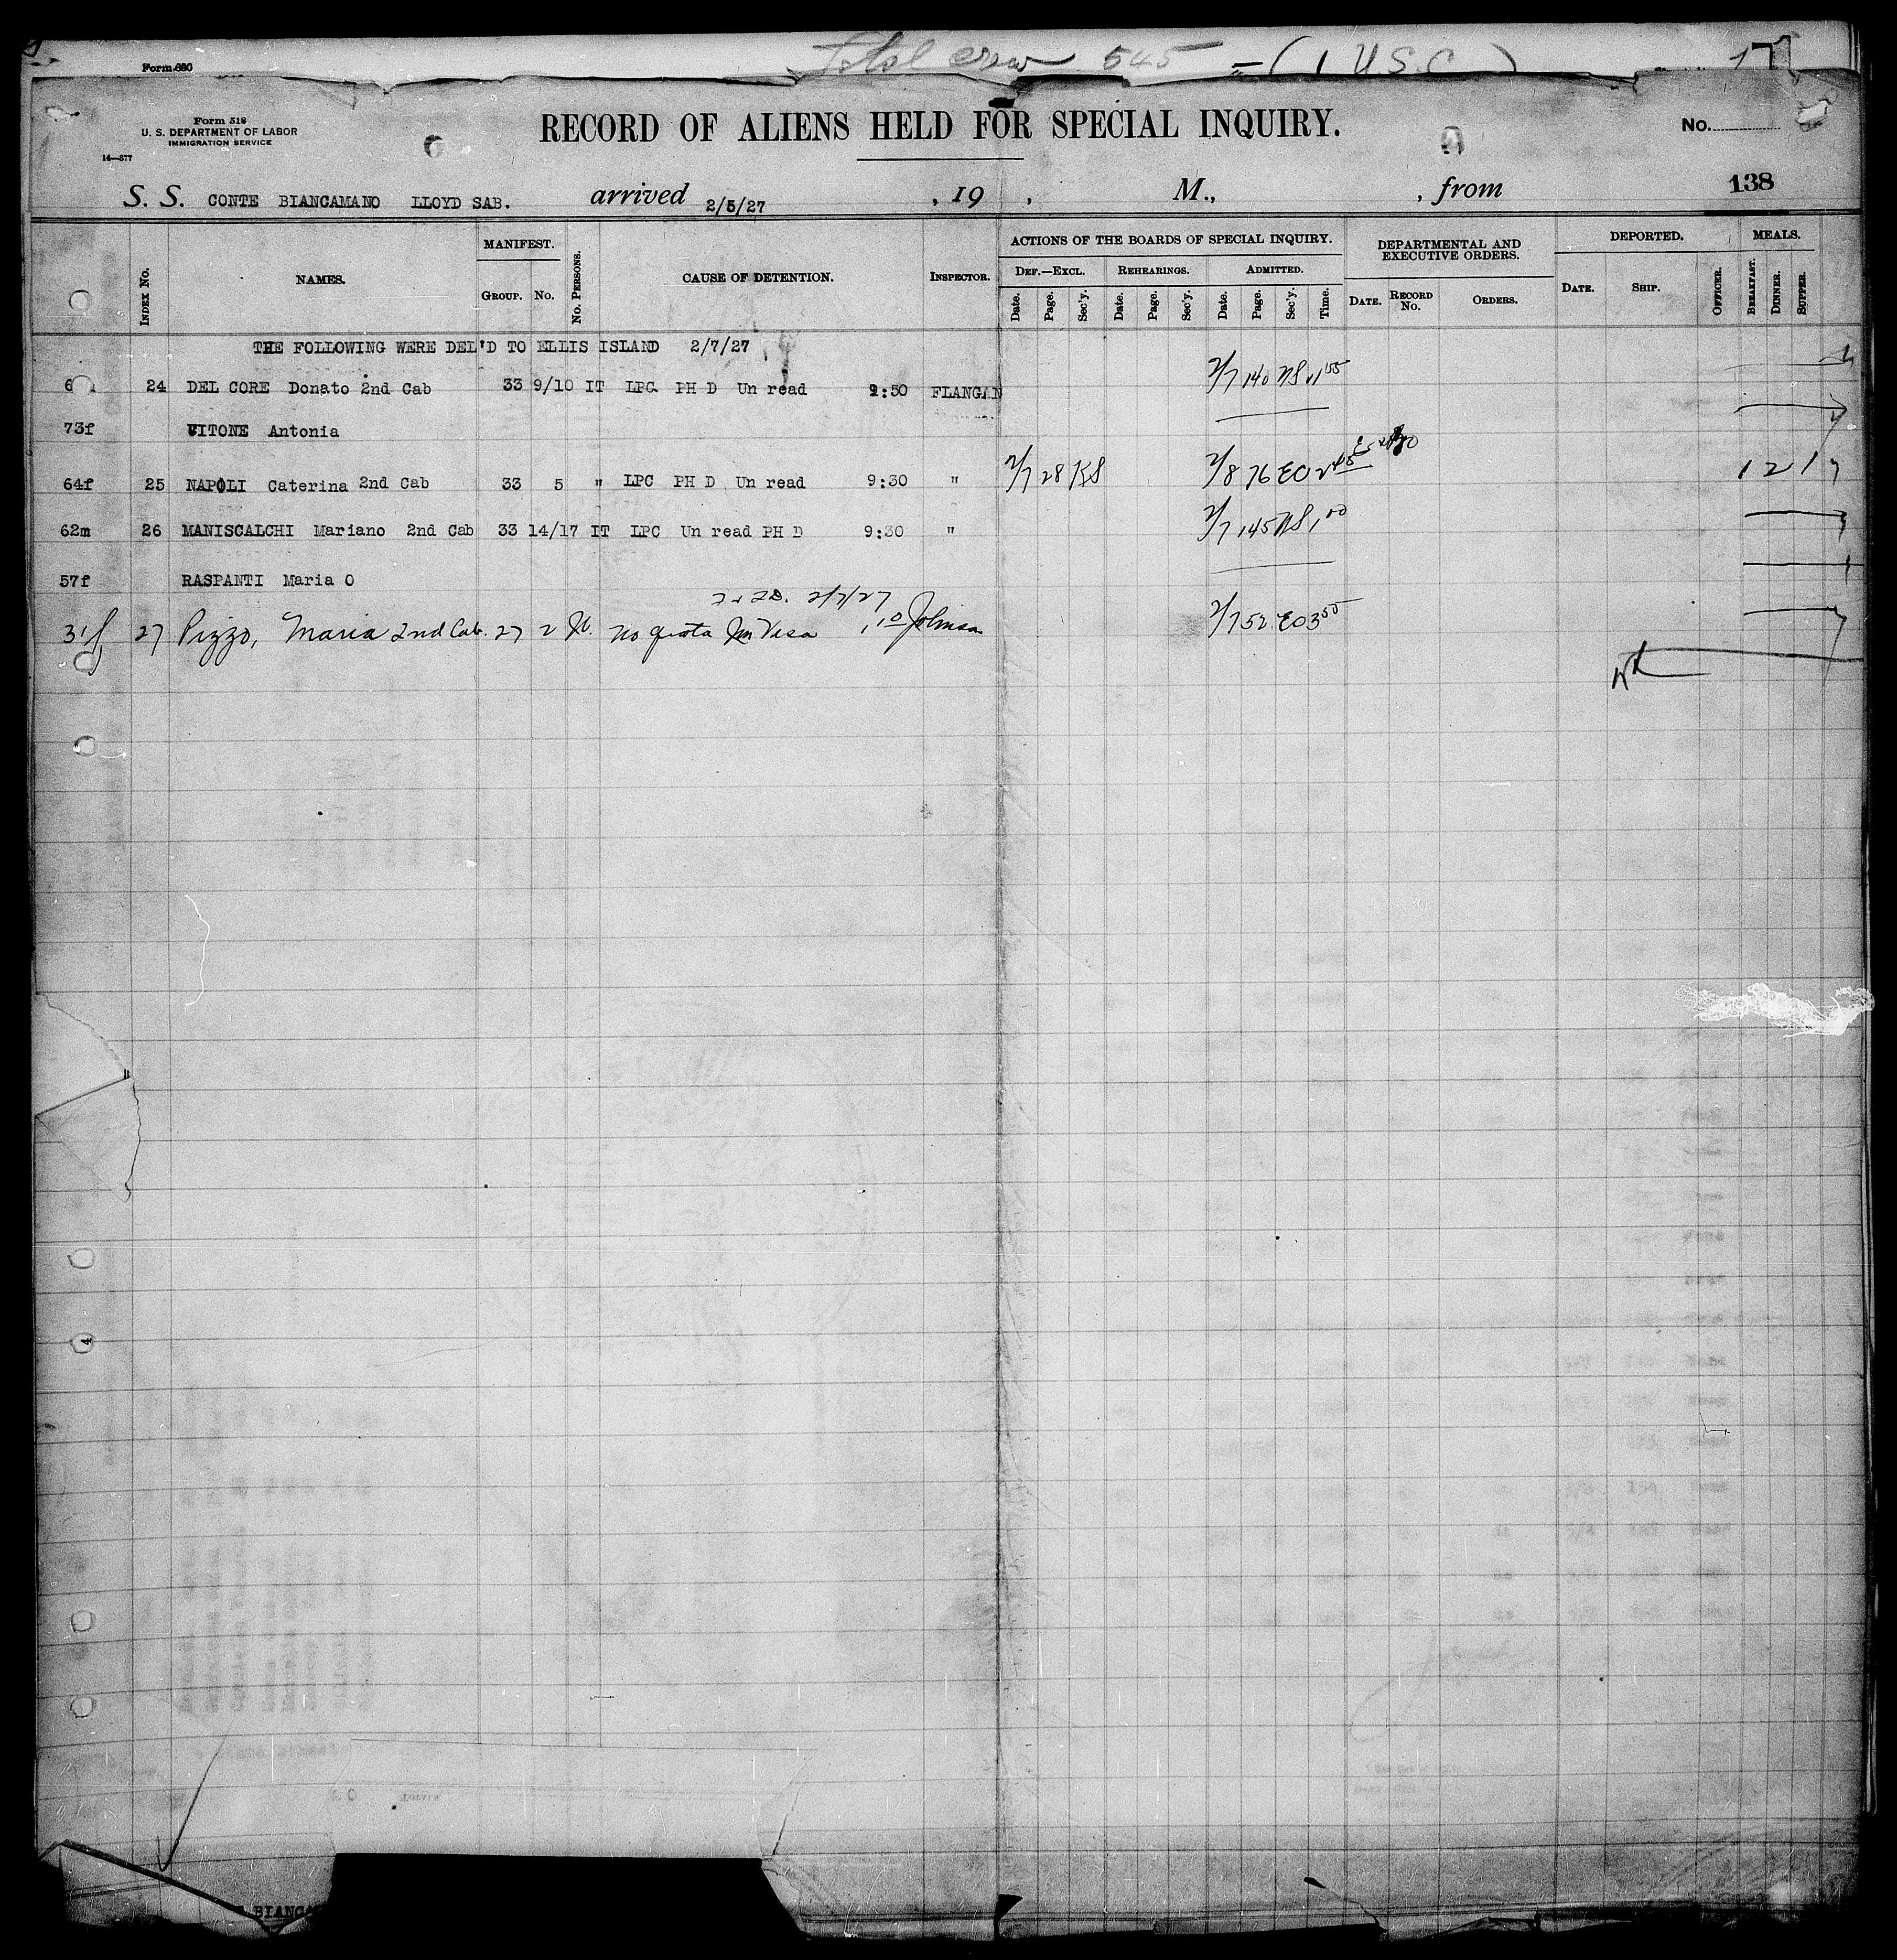 Total crew 545 = (1 U.S.C)
Form 630
17
Form 518
U. S. DEPARTMENT OF LABOR
IMMIGRATION SERVICE
14—577
RECORD OF ALIENS HELD FOR SPECIAL INQUIRY.
No.
S. S. CONTE BIANCAMANO LLOYD SAB. arrived 2/5/27 , 19 , M., , from 138
INDEX No. NAMES. MANIFEST. GROUP. No. No. PERSONS. CAUSE OF DETENTION. INSPECTOR. ACTIONS OF THE BOARDS OF SPECIAL INQUIRY. DEPARTMENTAL AND EXECUTIVE ORDERS. DEPORTED. MEALS.
DEF.—EXCL. REHEARINGS. ADMITTED.
Date. Page. Sec'y. Date. Page. Sec'y. Date. Page. Sec'y. Time. DATE. RECORD No. ORDERS. DATE. SHIP. OFFICER. BREAKFAST. DINNER. SUPPER.
THE FOLLOWING WERE DEL'D TO ELLIS ISLAND 2/7/27
24 DEL CORE Donato 2nd Cab 33 9/10 IT LPC PH D Un read 9:30 FLANGAN 2/7 140 NS
73f VITONE Antonia
64f 25 NAPOLI Caterina 2nd Cab 33 5 " LPC PH D Un read 9:30 " 2/7 28 KS 2/8 76 EO 2 45 1 2 1
62m 26 MANISCALCHI Mariano 2nd Cab 33 14/17 IT LPC Un read PH D 9:30 " 2/7 145 NS 1 00
57f RASPANTI Maria O
2/7/27
31f 27 Pizzo, Maria 2nd Cab. 27 2 It. no quota Im Visa 1 10 Johnson 2/7 52 EO 3 55
4
BIANCA